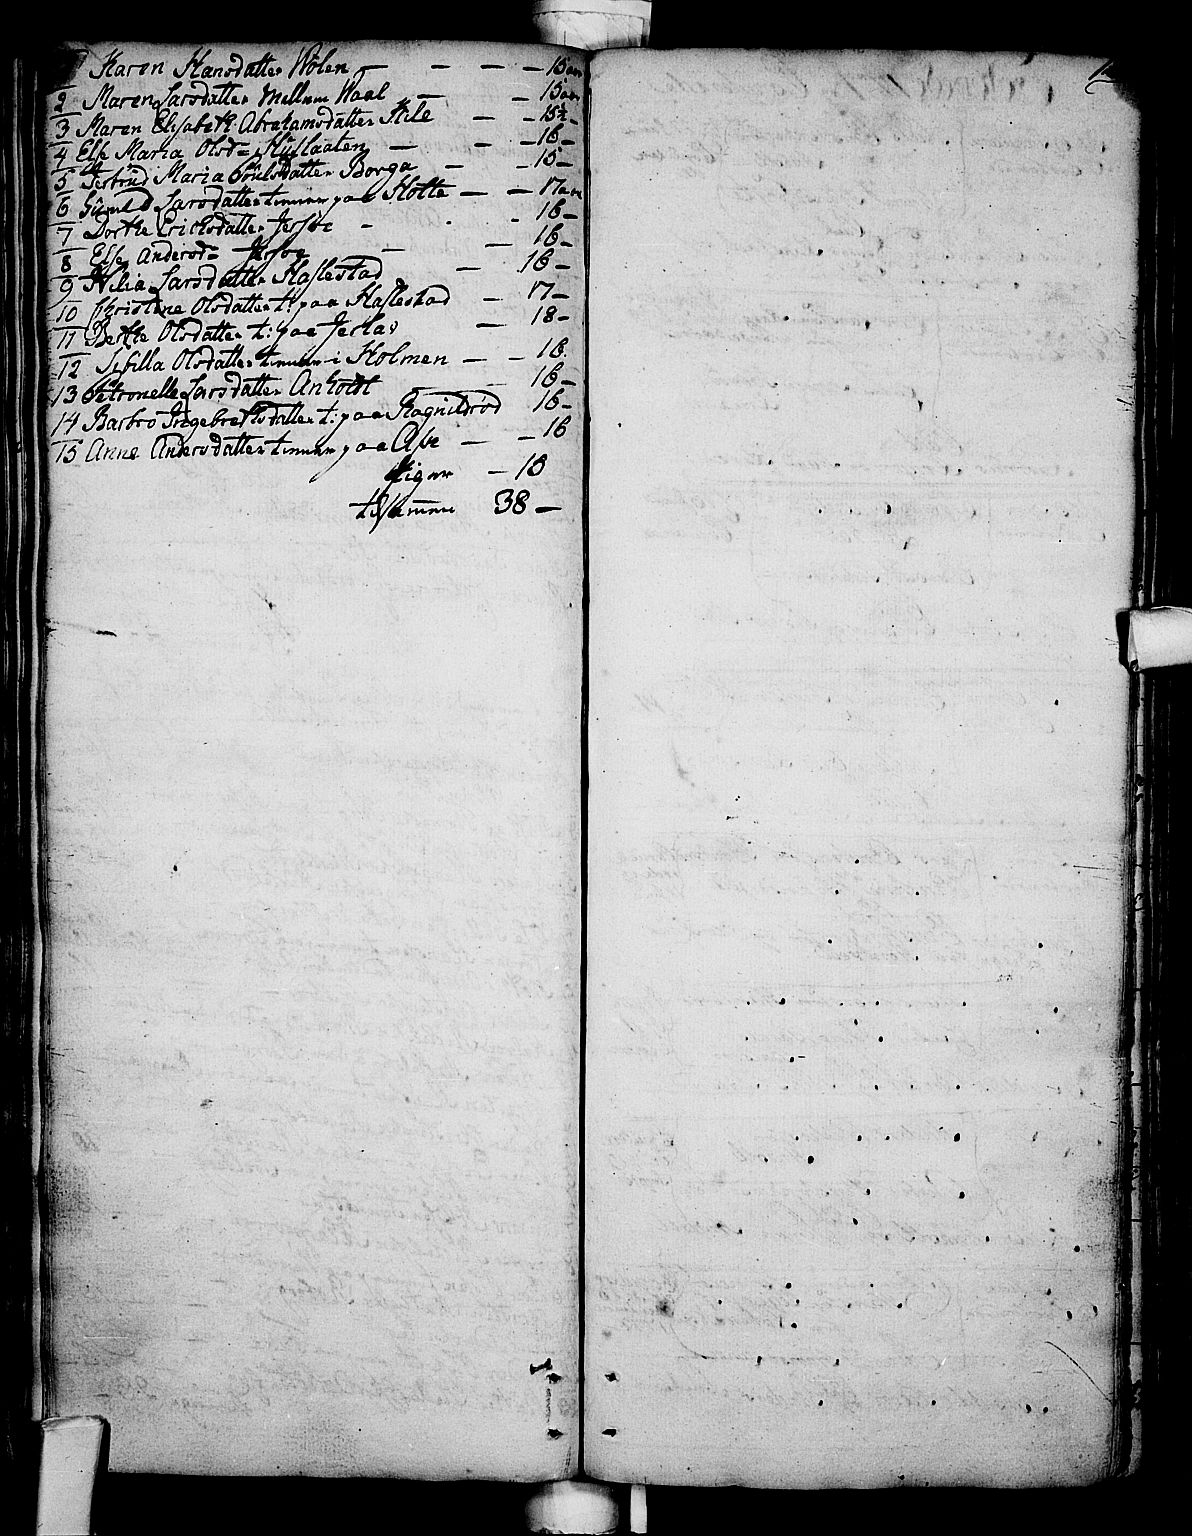 Karen Hansdatter Wølen – – – – 15 aar
2 Maren Larsdatter Mellum Waal – – 15 aar
3 Maren Elisabeth Abrahamsdatter Kile – – 15½ –
4 Else Maria Olsd= Huslaaten – – – 16 –
5 Gertrud Maria Poulsdatter Borga – – 15 –
6 Larsdatter tienner paa Holte – – 17 aar
7 Dorthe Ericksdatter Jersøe – - - 16 –
8 Else Andersd= Jersøe – – 16 –
9 Helia Larsdatter Haslestad – 16 –
10 Christine Olsdatter t: paa Haslestad – 17 –
11 Berthe Olsdatter t: paa – 18 –
12 Sibilla Olsdatter tienner i Holmen – – 16.
13 Petronelle Larsdatter Anholdt – 16 –
14 Barbro Ingebrethsdatter t: paa Ragnildrød 16 –
15 Anne Andersdatter tienner paa – – 16
Piger – 15
tilsammen 38 –